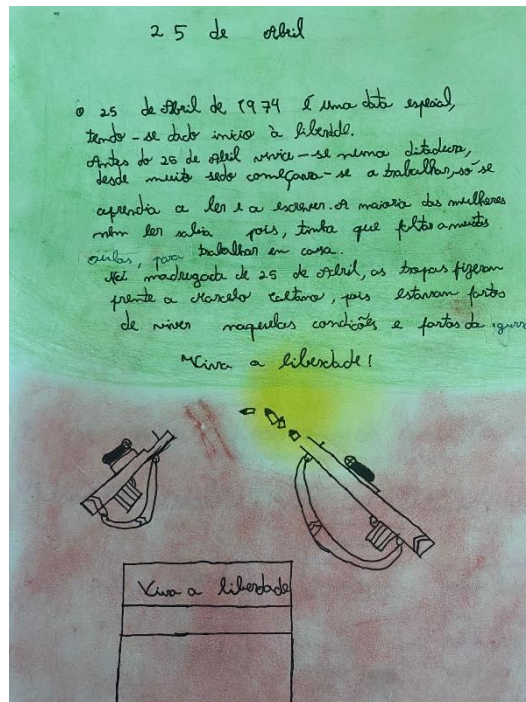 25 de Abril
O 25 de Abril de 1974 é uma data espeial,
tendo-se dado inicio à liberdde.
Antes do 25 de Abril vivia-se numa ditadura,
desde muito sedo começava-se a trabalhar, só se
aprendia a ler e a escrever. A maioria das mulheres
nem ler sabia pois, tinha que faltar a muitas
aulas, para trabalhar em casa.
Na madrugada de 25 de Abril, as tropas fizeram
frente a Marcelo Caetano, pois estavam fartos
de viver naquelas condições e fartos da gurra
Viva a liberdade!
Viva a liberdade